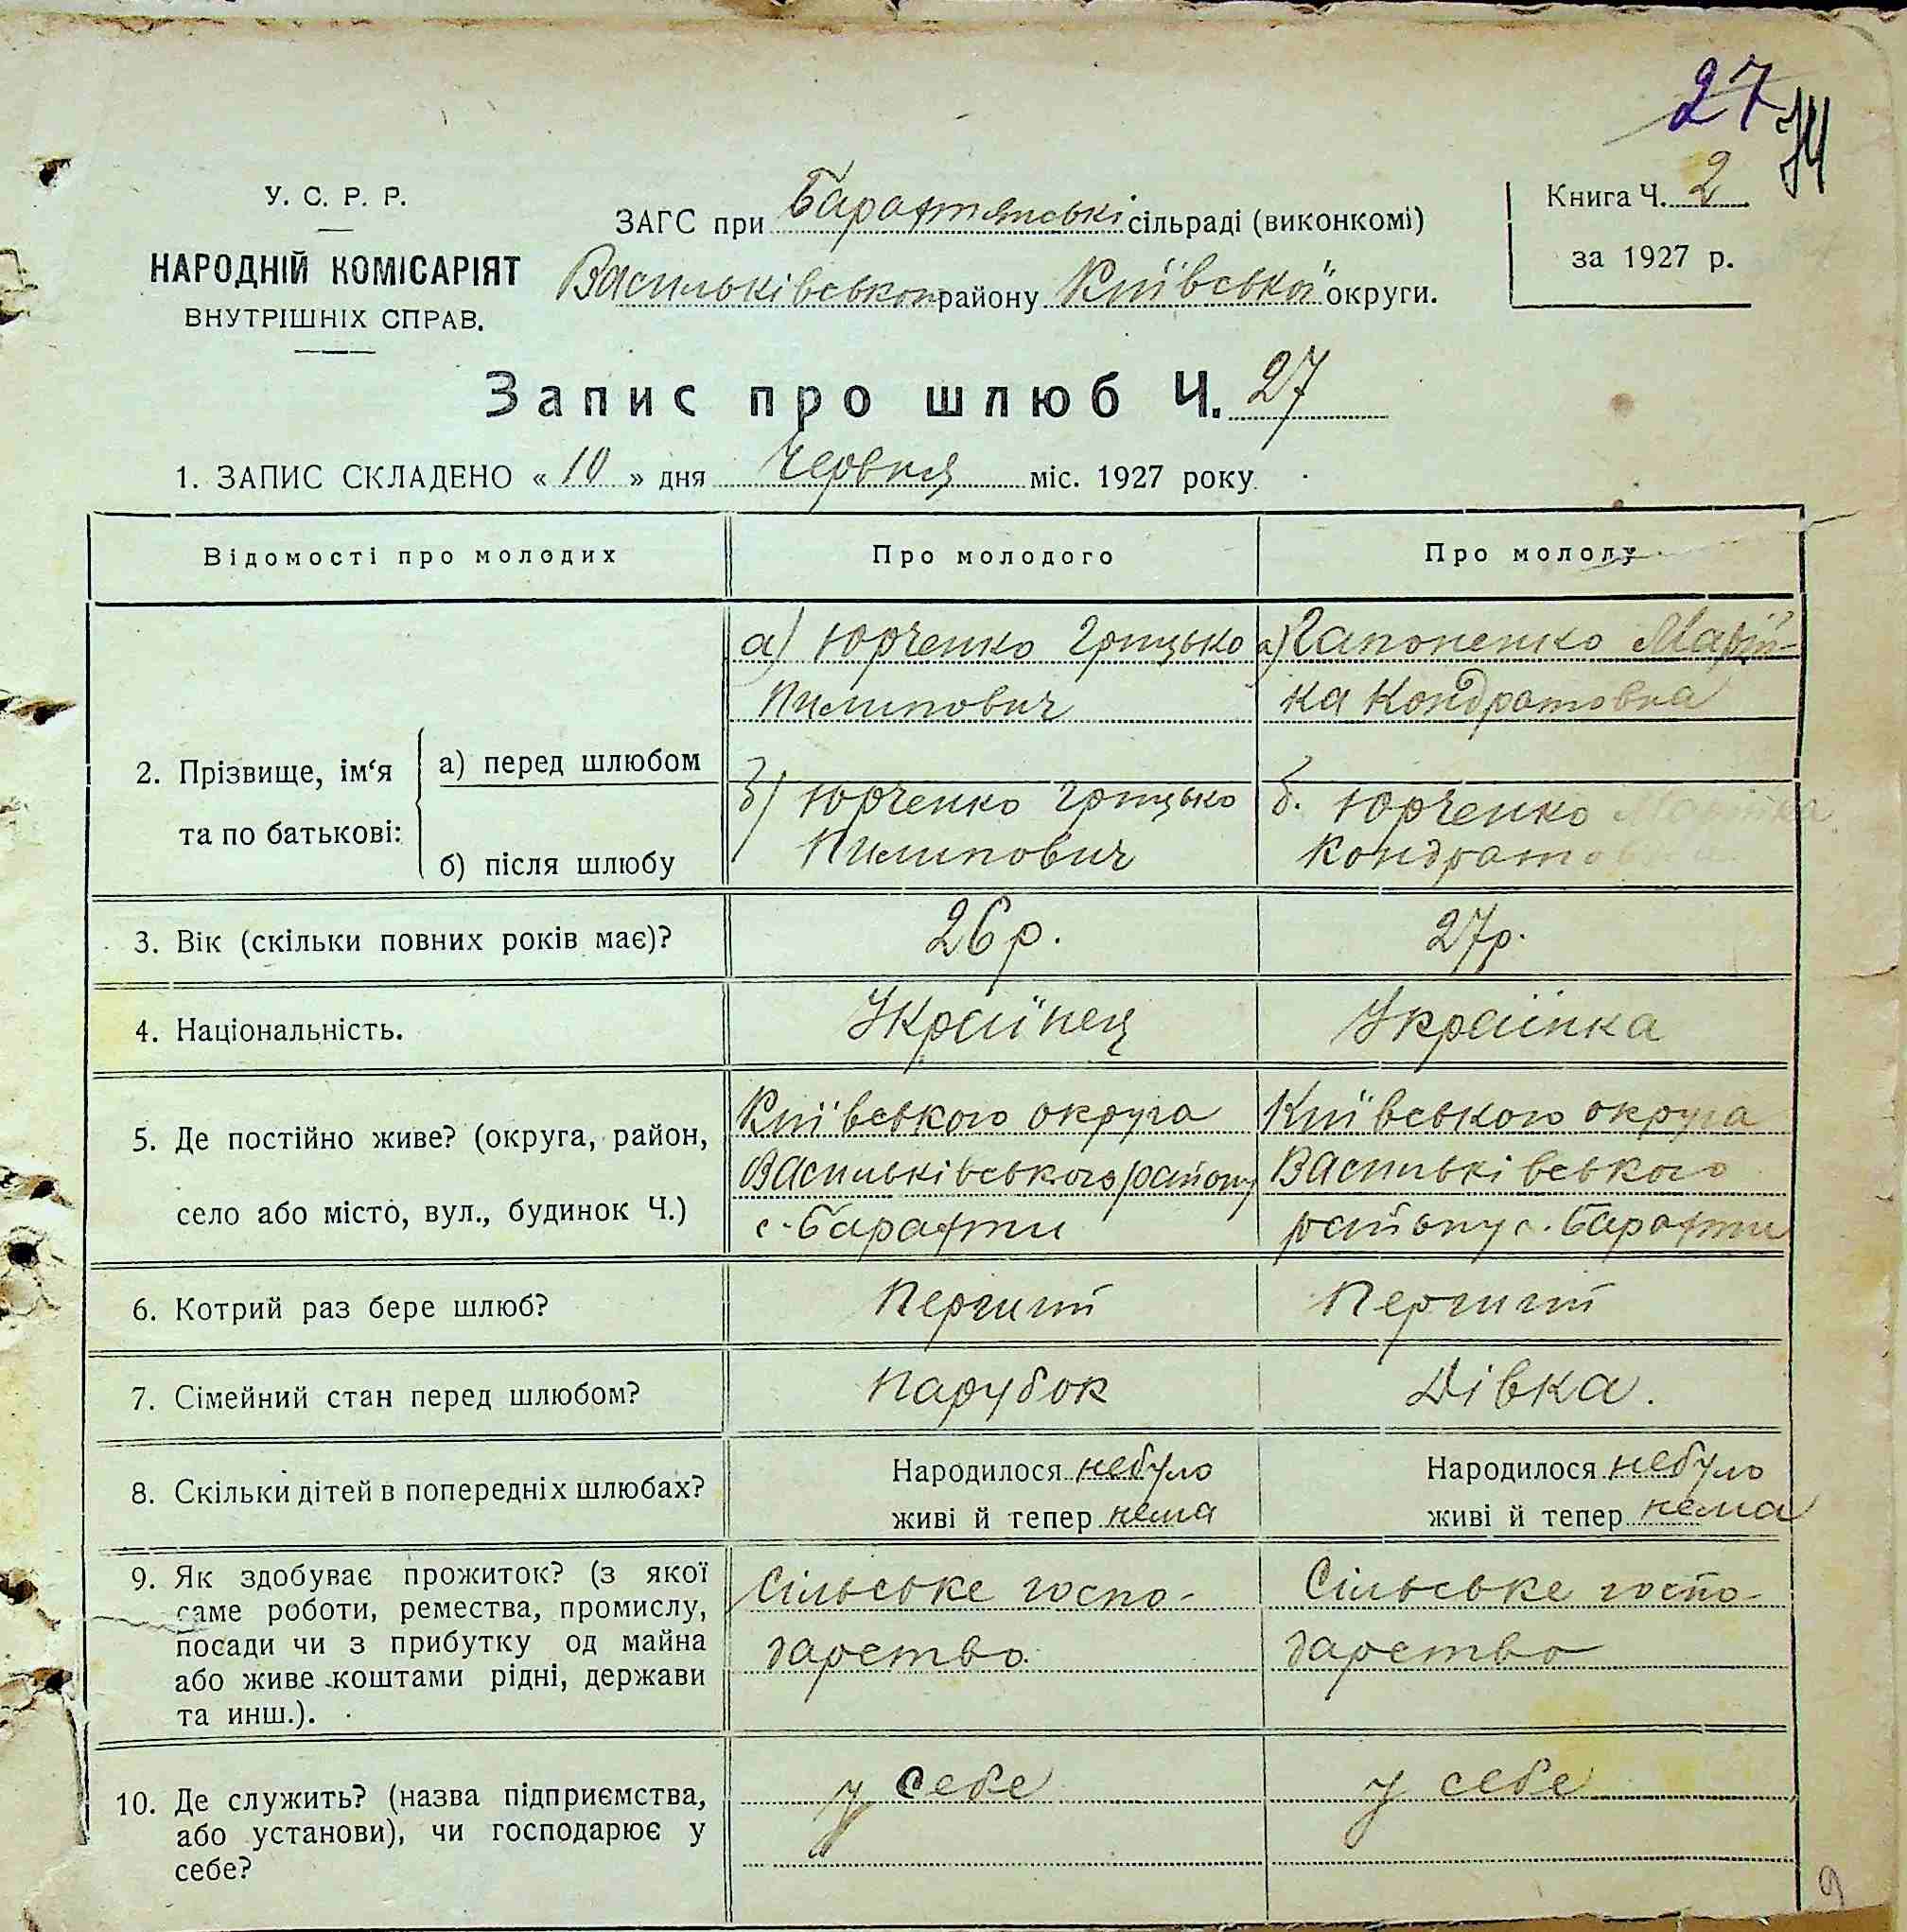 27
74
У. С. Р. Р.
НАРОДНІЙ КОМІСАРІЯТ
ВНУТРІШНІХ СПРАВ.
ЗАГС при Барахтянські сільраді (виконкомі)
Васильківського району Київської округи.
Книга Ч. 2
за 1927 р.
Запис про шлюб Ч. 27
1. ЗАПИС СКЛАДЕНО « 10 » дня Червня міс. 1927 року
Відомості про молодих
Про молодого
Про молоду
2. Прізвище, ім‘я та по батькові:
а) перед шлюбом
б) після шлюбу
а) Юрченко Грицько
Пилипович
б) Юрченко Грицько
Пилипович
а) Гапоненко Марій-
ка Кондратовна
б. Юрченко Марійка
Кондратовна
3. Вік (скільки повних років має)?
26 р.
27 р.
4. Національність.
Українец
Українка
5. Де постійно живе? (округа, район,
село або місто, вул., будинок Ч.)
Київського округа
Васильківського району
с. Барахти
Київського округа
Васильківського
району с. Барахти
6. Котрий раз бере шлюб?
Перший
Перший
7. Сімейний стан перед шлюбом?
Парубок
Дівка.
8. Скільки дітей в попередніх шлюбах?
Народилося небуло
живі й тепер нема
Народилося небуло
живі й тепер нема
9. Як здобуває прожиток? (з якої
саме роботи, ремества, промислу,
посади чи з прибутку од майна
або живе коштами рідні, держави
та инш.).
Сільське госпо-
дарство
Сільське госпо-
дарство
10. Де служить? (назва підприємства,
або установи), чи господарює у
себе?
у себе
у себе